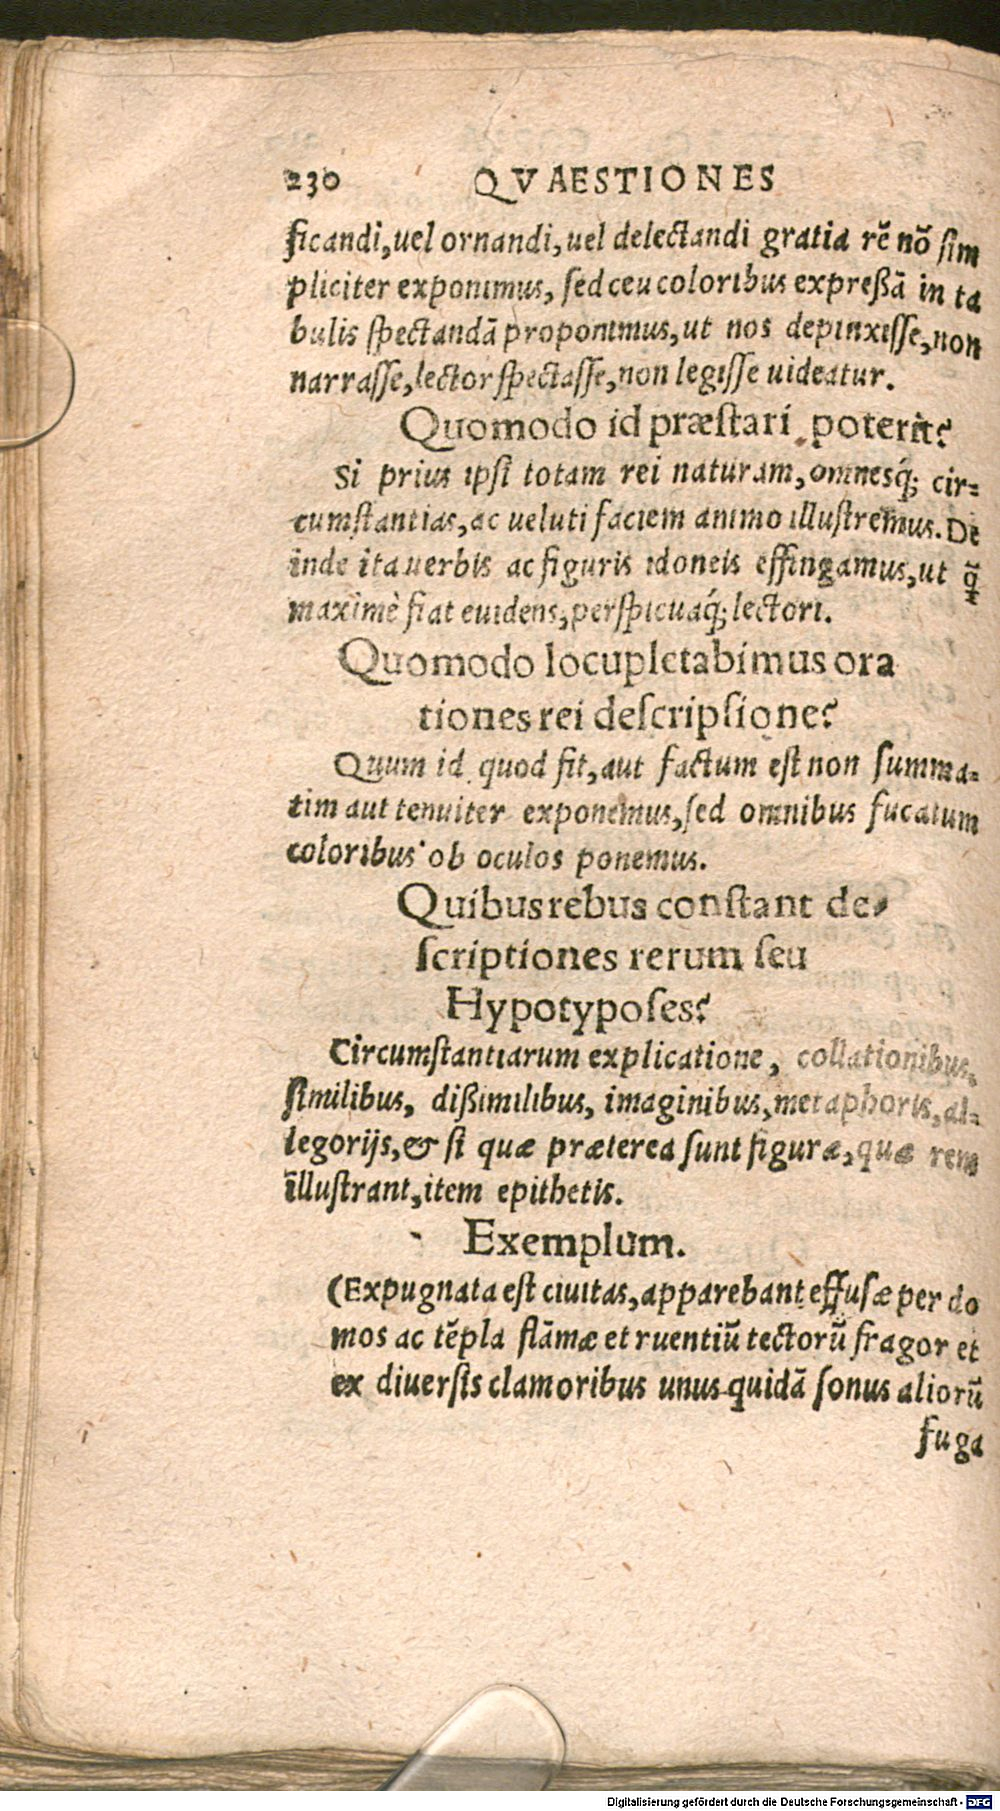 230 QVAESTIONES
ficandi, uel ornandi, uel delectandi gratia rē nõ sim
pliciter exponimus, sed ceu coloribus expreßā in ta
bulis spectandā proponimus, ut nos depinxisse, non
narrasse, lector spectasse, non legisse uideatur.
Quomodo id præstari poterit?
Si prius ipsi totam rei naturam, omnesq́; cir=
cumstantias, ac ueluti faciem animo illustremus. De
inde ita uerbis ac figuris idoneis effingamus, ut q̃
maximè fiat euidens, perspicuaq́; lectori.
Quomodo locupletabimus ora
tiones rei descripsione?
Quum id quod fit, aut factum est non summa=
tim aut tenuiter exponemus, sed omnibus fucatum
coloribus ob oculos ponemus.
Quibus rebus constant de-
scriptiones rerum seu
Hypotyposes?
Circumstantiarum explicatione, collationibus,
similibus, dißimilibus, imaginibus, metaphoris, al=
legorijs, & si quæ præterea sunt figuræ, quæ rem
illustrant, item epithetis.
Exemplum.
(Expugnata est ciuitas, apparebant effusæ per do
mos ac tēpla flāmæ et ruentiū tectorū fragor et
ex diuersis clamoribus unus quidā sonus aliorū
fuga
Digitalisierung gefördert durch die Deutsche Forschungsgemeinschaft - DFG